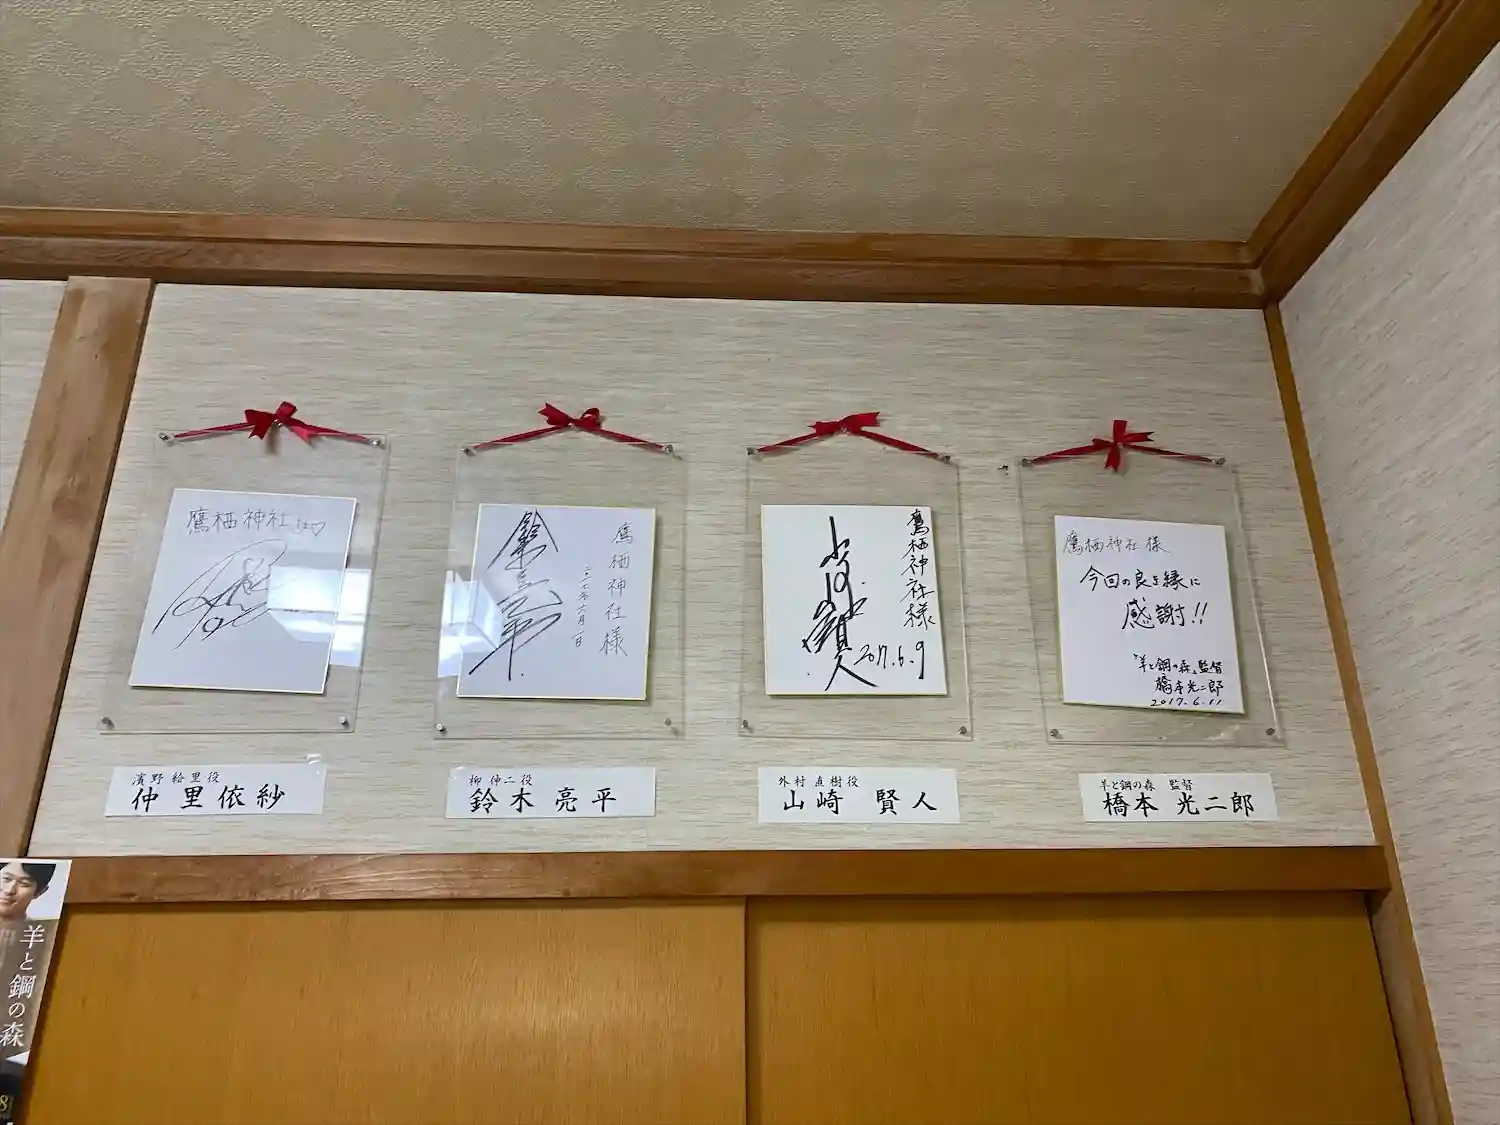 鷹栖神社さん♡
鈴木亮平
二〇一七年六月一日
鷹栖神社様
山﨑賢人
鷹栖神社様
2017.6.9
鷹栖神社様
今回の良き縁に
感謝!!
『羊と鋼の森』監督
橋本光二郎
2017.6.11
濱野 絵里役
仲里依紗
柳 伸二役
鈴木亮平
外村 直樹役
山崎 賢人
羊と鋼の森 監督
橋本 光二郎
羊と鋼の森
8